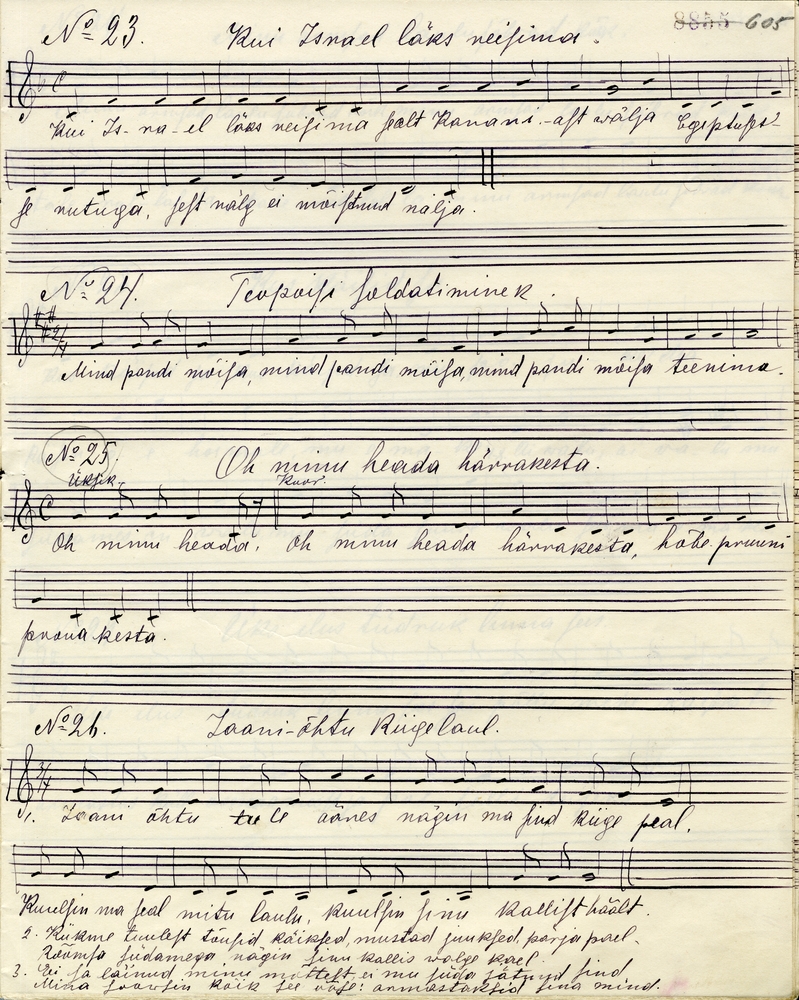 8855 605
No 23. Kui Israel läks reisima.
Kui Is-ra-el läks reisima sealt Kanani-ast wälja Egeptuses-
se rutuga, sest nälg ei mõistnud nalja.
No 24. Teopoisi soldatiminek.
Mind pandi mõisa, mind pandi mõisa, mind pandi mõisa teenima.
No 25. Oh minu heada härrakesta.
üksik. Koor.
Oh minu heada, oh minu heada härrakesta, hõbe pruuni
proua kesta.
No 26. Jaani-õhtu kiigelaul.
1. Jaani õhtu tule ääres nägin ma sind kiige peal.
Kuulsin ma seal mitu laulu, kuulsin sinu kallist häält.
2. Kiikme tuulest tõusid käiksed, mustad juuksed, pärja pael.
Rõõmsa südamega nägin sinu kallis walge kael.
3. Ei sa läinud minu mõttest, ei mu süda jätnud sind
Mina soowsin kõik see ööse: armastaksid sina mind.